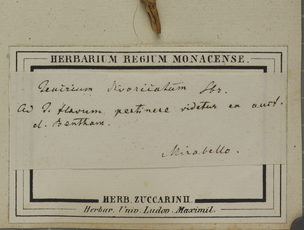 HERBARIUM REGIUM MONACENSE.
Teucrium
Ad T. flavum pertinere videtur ex auct.
cl. Bentham.
Mirabello.
HERB. ZUCCARINII.
Herbar. Univ. Ludov. Maximil.